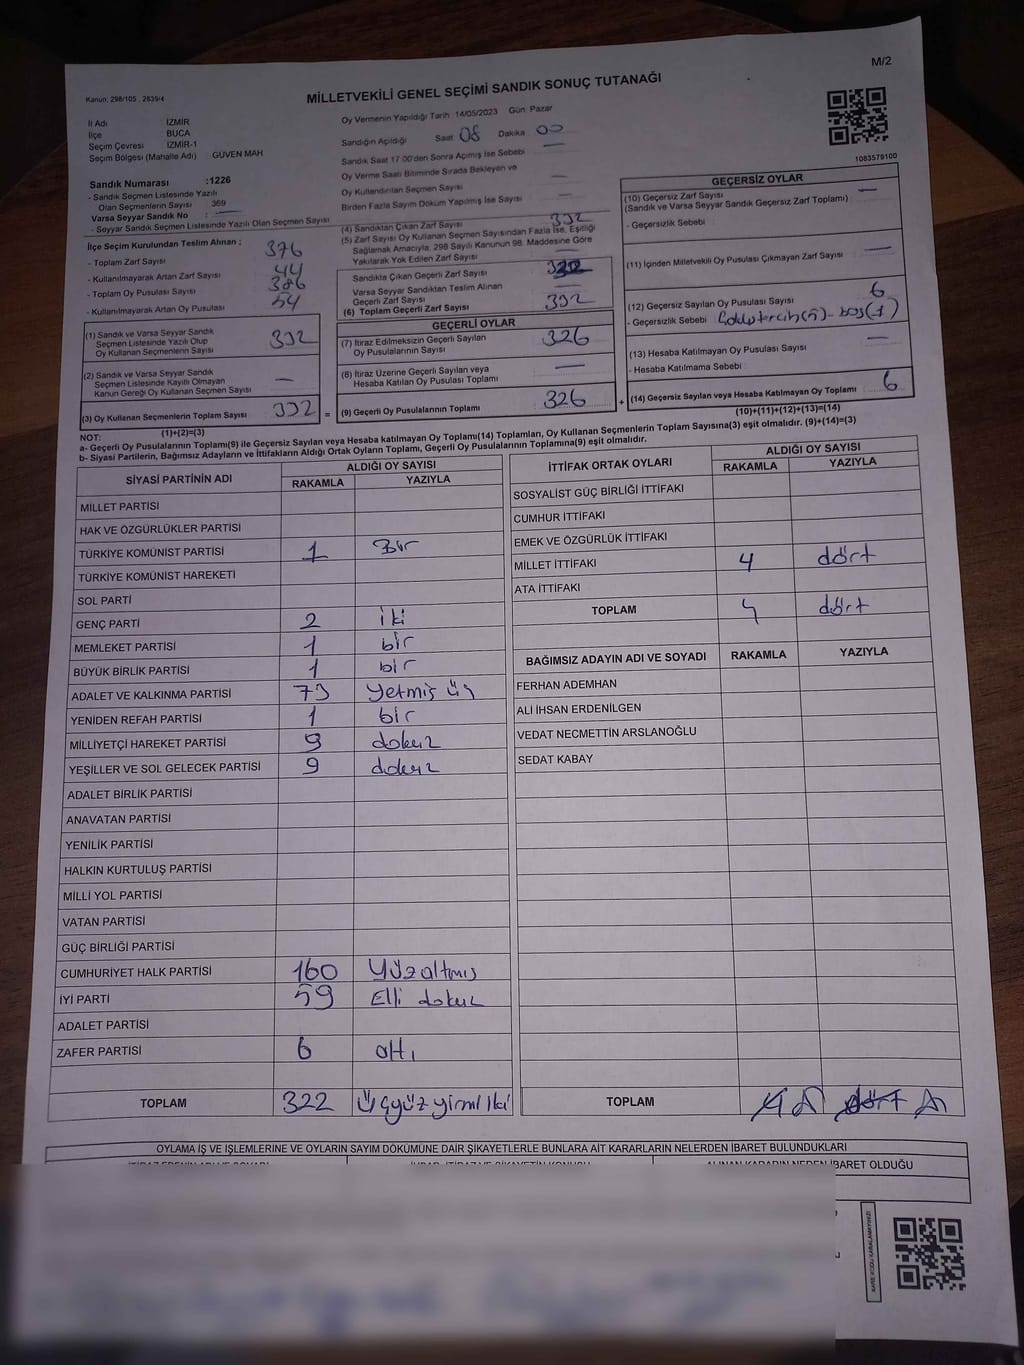 M/2
Kanun: 298/105 , 2839/4
MİLLETVEKİLİ GENEL SEÇİMİ SANDIK SONUÇ TUTANAĞI
İl Adı İZMİR
İlçe BUCA
Seçim Çevresi İZMİR-1
Seçim Bölgesi (Mahalle Adı) GÜVEN MAH
Sandık Numarası :1226
- Sandık Seçmen Listesinde Yazılı
Olan Seçmenlerin Sayısı 369
Varsa Seyyar Sandık No : —
- Seyyar Sandık Seçmen Listesinde Yazılı Olan Seçmen Sayısı
Oy Vermenin Yapıldığı Tarih 14/05/2023 Gün: Pazar
Sandığın Açıldığı Saat 08 Dakika 00
Sandık Saat 17.00'den Sonra Açılmış İse Sebebi —
Oy Verme Saati Bitiminde Sırada Bekleyen ve
Oy Kullandırılan Seçmen Sayısı —
Birden Fazla Sayım Döküm Yapılmış İse Sayısı —
1083579100
İlçe Seçim Kurulundan Teslim Alınan ;
- Toplam Zarf Sayısı 376
- Kullanılmayarak Artan Zarf Sayısı 44
- Toplam Oy Pusulası Sayısı 386
- Kullanılmayarak Artan Oy Pusulası 54
(1) Sandık ve Varsa Seyyar Sandık
Seçmen Listesinde Yazılı Olup
Oy Kullanan Seçmenlerin Sayısı 332
(2) Sandık ve Varsa Seyyar Sandık
Seçmen Listesinde Kayıtlı Olmayan
Kanun Gereği Oy Kullanan Seçmen Sayısı —
(3) Oy Kullanan Seçmenlerin Toplam Sayısı 332 =
(1)+(2)=(3)
(4) Sandıktan Çıkan Zarf Sayısı 332
(5) Zarf Sayısı Oy Kullanan Seçmen Sayısından Fazla İse, Eşitliği
Sağlamak Amacıyla, 298 Sayılı Kanunun 98. Maddesine Göre
Yakılarak Yok Edilen Zarf Sayısı —
Sandıkta Çıkan Geçerli Zarf Sayısı 332
Varsa Seyyar Sandıktan Teslim Alınan
Geçerli Zarf Sayısı —
(6) Toplam Geçerli Zarf Sayısı 332
GEÇERLİ OYLAR
(7) İtiraz Edilmeksizin Geçerli Sayılan
Oy Pusulalarının Sayısı 326
(8) İtiraz Üzerine Geçerli Sayılan veya
Hesaba Katılan Oy Pusulası Toplamı —
(9) Geçerli Oy Pusulalarının Toplamı 326 +
GEÇERSİZ OYLAR
(10) Geçersiz Zarf Sayısı —
(Sandık ve Varsa Seyyar Sandık Geçersiz Zarf Toplamı)
- Geçersizlik Sebebi
(11) İçinden Milletvekili Oy Pusulası Çıkmayan Zarf Sayısı —
(12) Geçersiz Sayılan Oy Pusulası Sayısı 6
- Geçersizlik Sebebi Çoklu tercih(5)-boş(1)
(13) Hesaba Katılmayan Oy Pusulası Sayısı —
- Hesaba Katılmama Sebebi
(14) Geçersiz Sayılan veya Hesaba Katılmayan Oy Toplamı 6
(10)+(11)+(12)+(13)=(14)
NOT:
a- Geçerli Oy Pusulalarının Toplamı(9) ile Geçersiz Sayılan veya Hesaba katılmayan Oy Toplamı(14) Toplamları, Oy Kullanan Seçmenlerin Toplam Sayısına(3) eşit olmalıdır. (9)+(14)=(3)
b- Siyasi Partilerin, Bağımsız Adayların ve İttifakların Aldığı Ortak Oyların Toplamı, Geçerli Oy Pusulalarının Toplamına(9) eşit olmalıdır.
SİYASİ PARTİNİN ADI ALDIĞI OY SAYISI
RAKAMLA YAZIYLA
MİLLET PARTİSİ
HAK VE ÖZGÜRLÜKLER PARTİSİ
TÜRKİYE KOMÜNİST PARTİSİ 1 Bir
TÜRKİYE KOMÜNİST HAREKETİ
SOL PARTİ
GENÇ PARTİ 2 iki
MEMLEKET PARTİSİ 1 bir
BÜYÜK BİRLİK PARTİSİ 1 bir
ADALET VE KALKINMA PARTİSİ 73 Yetmiş üç
YENİDEN REFAH PARTİSİ 1 bir
MİLLİYETÇİ HAREKET PARTİSİ 9 dokuz
YEŞİLLER VE SOL GELECEK PARTİSİ 9 dokuz
ADALET BİRLİK PARTİSİ
ANAVATAN PARTİSİ
YENİLİK PARTİSİ
HALKIN KURTULUŞ PARTİSİ
MİLLİ YOL PARTİSİ
VATAN PARTİSİ
GÜÇ BİRLİĞİ PARTİSİ
CUMHURİYET HALK PARTİSİ 160 Yüzaltmış
İYİ PARTİ 59 Elli dokuz
ADALET PARTİSİ
ZAFER PARTİSİ 6 altı
TOPLAM 322 Üçyüz yirmi iki
İTTİFAK ORTAK OYLARI ALDIĞI OY SAYISI
RAKAMLA YAZIYLA
SOSYALİST GÜÇ BİRLİĞİ İTTİFAKI
CUMHUR İTTİFAKI
EMEK VE ÖZGÜRLÜK İTTİFAKI
MİLLET İTTİFAKI 4 dört
ATA İTTİFAKI
TOPLAM 4 dört
BAĞIMSIZ ADAYIN ADI VE SOYADI RAKAMLA YAZIYLA
FERHAN ADEMHAN
ALİ İHSAN ERDENİLGEN
VEDAT NECMETTİN ARSLANOĞLU
SEDAT KABAY
TOPLAM 4 dört
OYLAMA İŞ VE İŞLEMLERİNE VE OYLARIN SAYIM DÖKÜMÜNE DAİR ŞİKAYETLERLE BUNLARA AİT KARARLARIN NELERDEN İBARET BULUNDUKLARI
ALINAN KARARIN NEDEN İBARET OLDUĞU